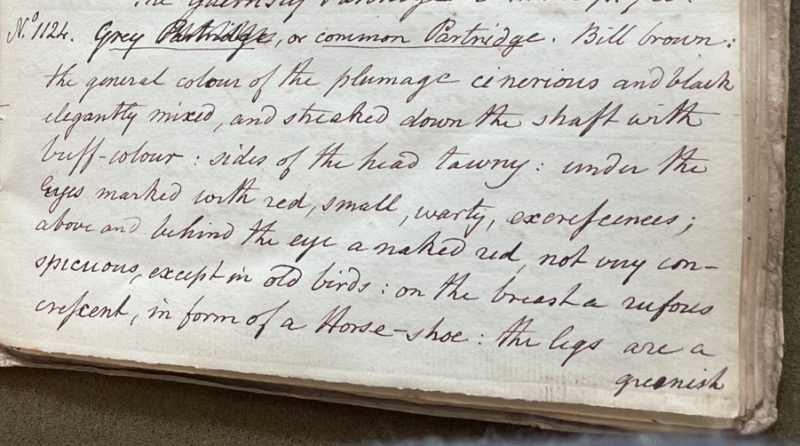 the Guernsey Partridge
N.º 1124. Grey Partridge, or common Partridge. Bill brown:
the general colour of the plumage cinerious and black
elegantly mixed, and streaked down the shaft with
buff-colour: sides of the head tawny: under the
Eyes marked with red, small, warty, excreſcences;
above and behind the eye a naked red, not very con-
spicuous, except in old birds: on the breast a rufous
creſcent, in form of a Horse-shoe: the legs are a
greenish